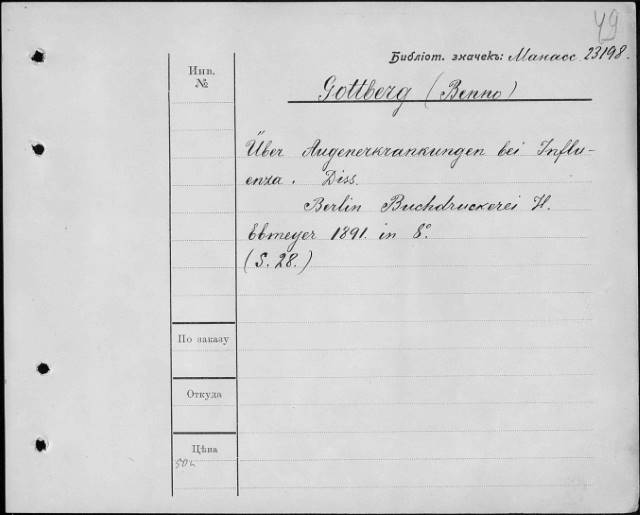 49
Библіот. значекъ: Манасс 23198.
Инв.
№
Gottberg (Benno)
Über Augenerkrankungen bei Influ-
enza. Diss.
Berlin Buchdruckerei H.
Ebmeyer 1891. in 8°.
(S. 28.)
По заказу
Откуда
Цѣна